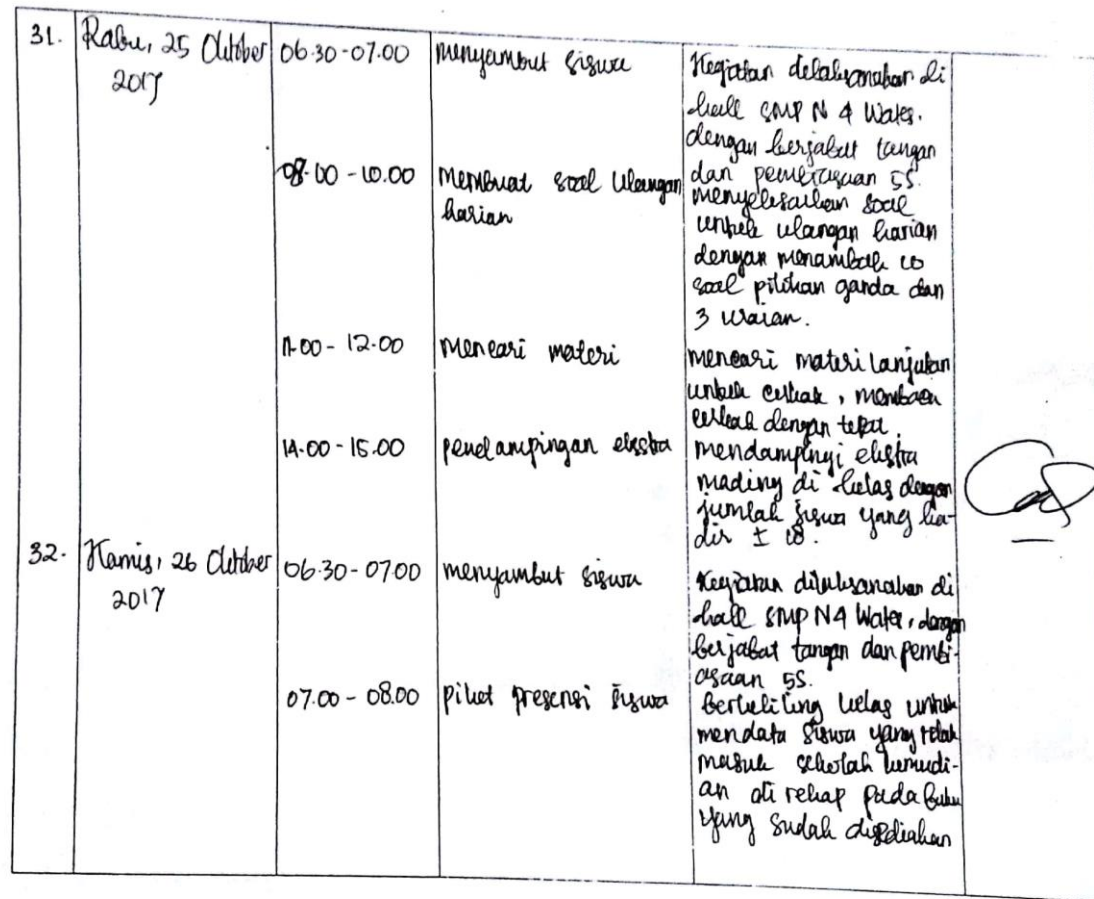 31. Rabu, 25 Oktober 2017
06.30 - 07.00
menyambut siswa
Kegiatan dilaksanakan di
hall SMP N 4 Wates.
dengan berjabat tangan
dan pembiasaan 5S.
08.00 - 10.00
Membuat soal ulangan
harian
menyelesaikan soal
untuk ulangan harian
dengan menambah 10
soal pilihan ganda dan
3 uraian.
11.00 - 12.00
Mencari materi
mencari materi lanjutan
untuk cerkak, membaca
cerkak dengan
14.00 - 15.00
pendampingan ekstra
mendampingi ekstra
mading di kelas dengan
jumlah siswa yang ha-
dir ± 10.
32. Kamis, 26 Oktober
2017
06.30 - 07.00
menyambut siswa
Kegiatan dilaksanakan di
hall SMP N 4 Wates, dengan
berjabat tangan dan pembi-
asaan 5S.
07.00 - 08.00
piket presensi siswa
berkeliling kelas untuk
mendata siswa yang tidak
masuk sekolah kemudi-
an di rekap pada buku
yang sudah disediakan